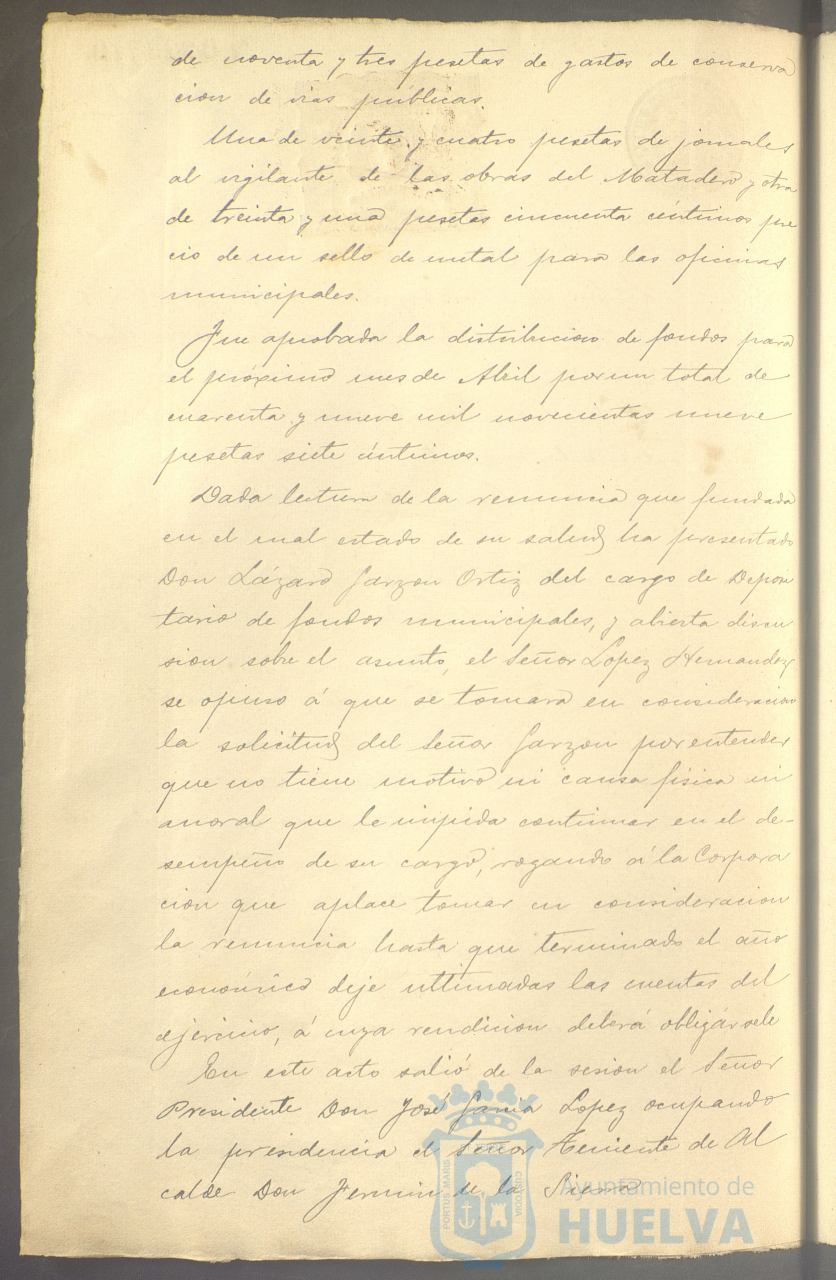 de noventa y tres pesetas de gastos de conserva
cion de vias públicas.
Una de veinte y cuatro pesetas de jornales
al vigilante de las obras del Matadero y otra
de treinta y una pesetas cincuenta céntimos pre
cio de un sello de metal para las oficinas
municipales.
Fue aprobada la distribucion de fondos para
el próximo mes de Abril por un total de
cuarenta y nueve mil novecientas nueve
pesetas siete céntimos.
Dada lectura de la renuncia que fundada
en el mal estado de su salud ha presentado
Don Lázaro Garzon Ortiz del cargo de Deposi
tario de fondos municipales, y abierta discu
sion sobre el asunto, el Señor Lopez Hernandez
se opuso á que se tomara en consideracion
la solicitud del Señor Garzon por entender
que no tiene motivo ni causa física ni
moral que le impida continuar en el de-
sempeño de su cargo, rogando á la Corpora
cion que aplace tomar en consideracion
la renuncia hasta que terminado el año
económico deje ultimadas las cuentas del
ejercicio, á cuya rendicion deberá obligársele
En este acto salió de la sesion el Señor
Presidente Don José Garcia Lopez ocupando
la presidencia el Señor Teniente de Al
calde Don Fermin de la Sierra
PORTUS MARIS CUSTODIA
Ayuntamiento de
HUELVA